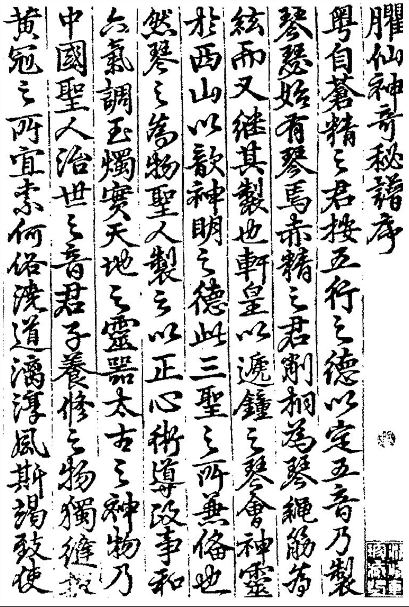 臞仙神奇秘譜序
粵自蒼精之君按五行之德以定五音乃製
琴瑟始有琴焉赤精之君削桐為琴繩筋為
絃而又継其製也軒皇以遞鐘之琴會神靈
於西山以歆神明之德此三聖之所兼俻也
然琴之為物聖人製之以正心術導政事和
六氣調玉燭實天地之靈器太古之神物乃
中國聖人治世之音君子養修之物獨縫掖
黃冠之所宜柰何俗澆道漓淳風斯竭致使